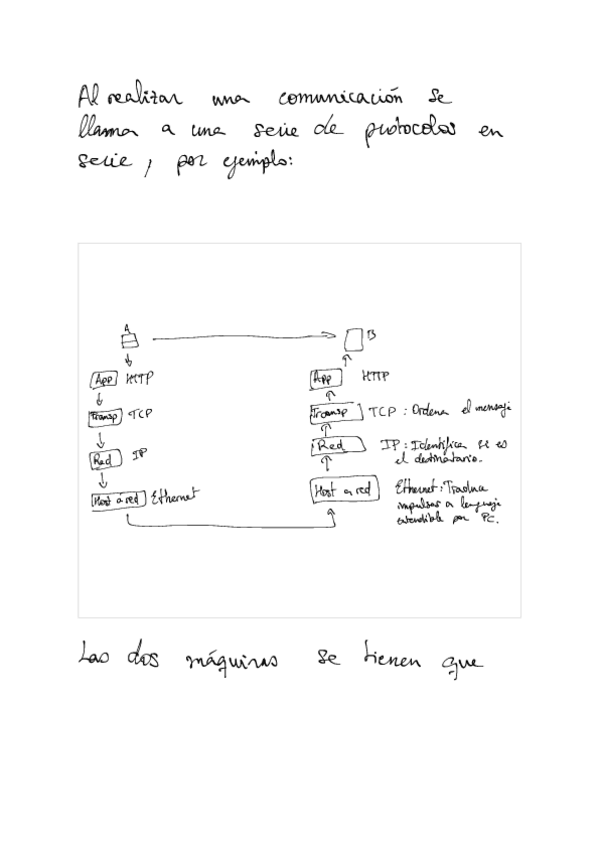 Al realizar una comunicación se
llaman a una serie de protocolos en
serie, por ejemplo:
A
B
App HTTP
App HTTP
Transp TCP
Transp TCP : Ordena el mensaje
Red IP
Red IP : Identifica si es
el destinatario.
Host a red Ethernet
Host a red Ethernet : Traduce
impulsos a lenguaje
entendible por PC.
Las dos máquinas se tienen que